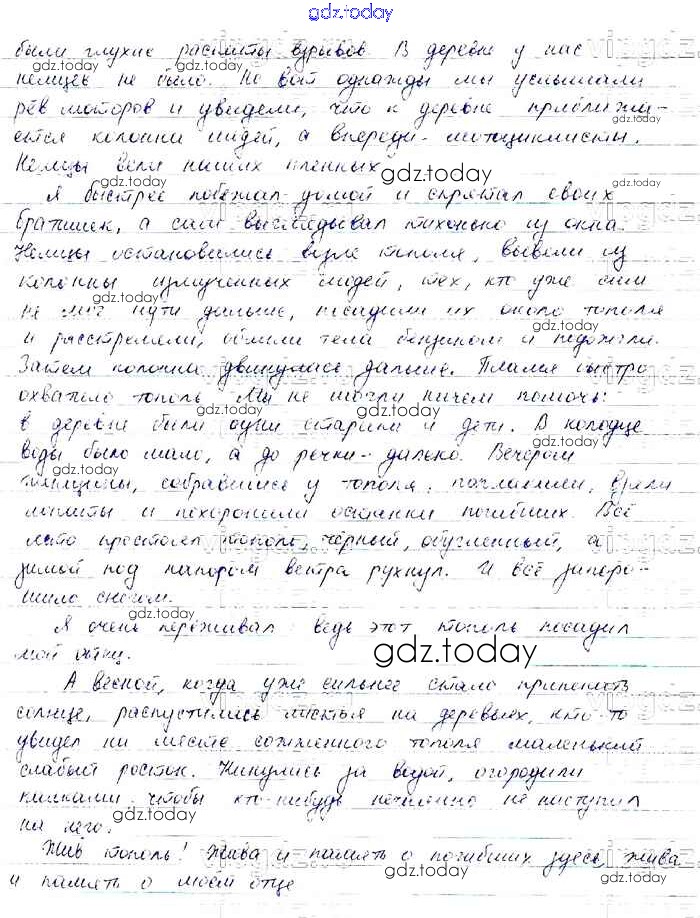 gdz.today
были глухие раскаты взрывов. В деревне у нас
немцев не было. Но вот однажды мы услышали
рёв моторов и увидели, что к деревне приближа-
ется колонна людей, а впереди - мотоциклисты.
Немцы вели наших пленных.
Я быстрее побежал домой и спрятал своих
братишек, а сам выглядывал тихонько из окна.
Немцы остановились возле тополя, вывели из
колонны измученных людей, тех, кто уже сам
не мог идти дальше, посадили их около тополя
и расстреляли, облили тела бензином и подожгли.
Затем колонна двинулась дальше. Пламя быстро
охватило тополь. Мы не могли ничем помочь:
в деревне были одни старики и дети. В колодце
воды было мало, а до речки - далько. Вечером
женщины, собравшись у тополя, поплакали, взяли
лопаты и похоронили останки погибших. Всё
лето простоял тополь, чёрный, обугленный, а
зимой под напором ветра рухнул. И всё запоро-
шило снегом.
Я очень переживал: ведь этот тополь посадил
мой отец.
А весной, когда уже сильнее стало припекать
солнце, распустились листья на деревьях, кто-то
увидел на месте сожженного тополя маленький
слабый росток. Кинулись за водой, огородили
кольями, чтобы кто-нибудь нечаянно не наступил
на него.
Жив тополь! Жива и память о погибших здесь, жива
и память о моём отце